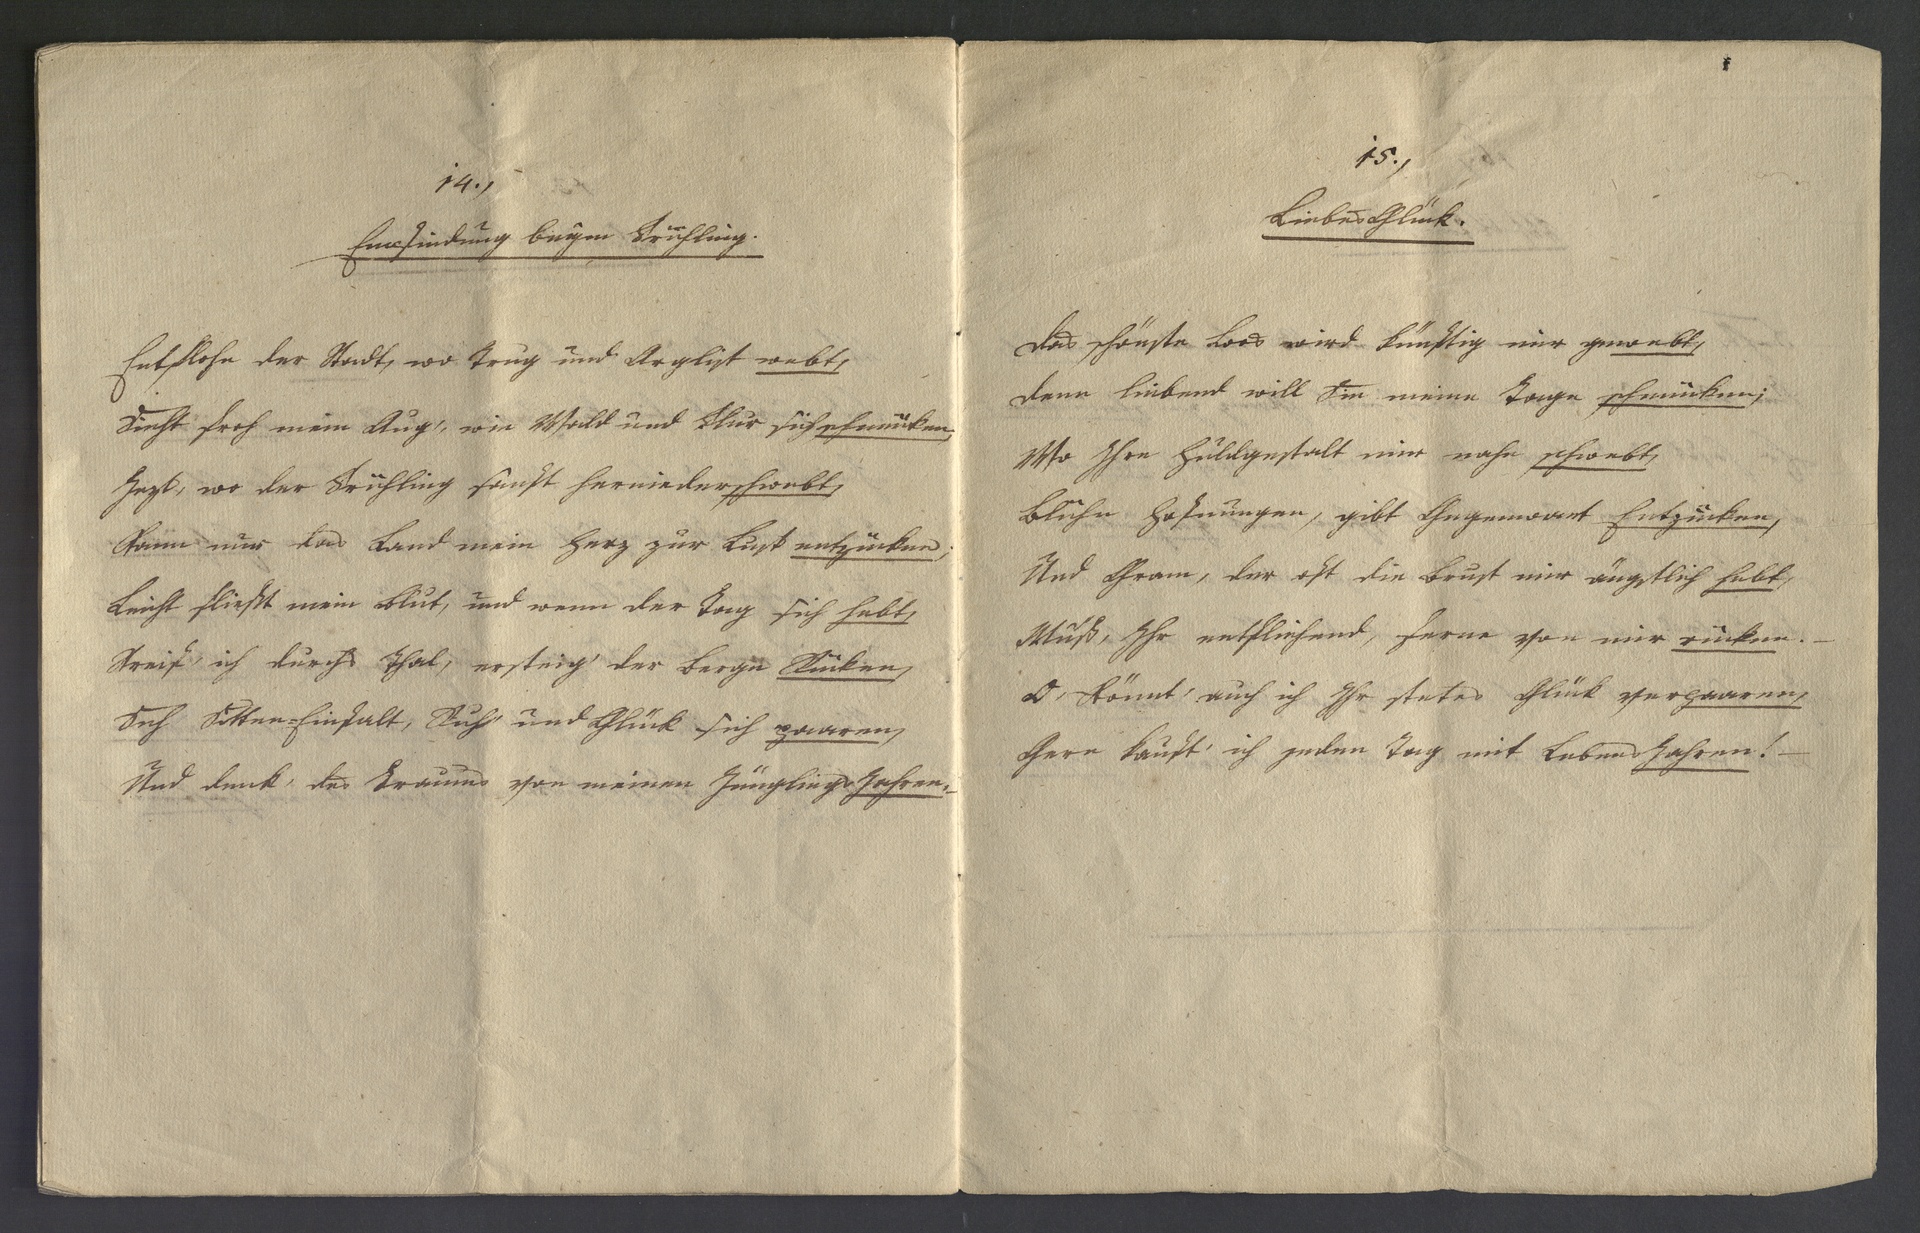 14.,
Empfindung beÿm Frühling.
Entflohn der Stadt, wo Trug und Arglist webt,
Sieht froh mein Aug', wie Wald und Flur sich schmücken,
Jezt, wo der Frühling sanft herniederschwebt,
Kann nur das Land mein Herz zur Lust entzücken;
Leicht fließt mein Blut, und wenn der Tag sich hebt,
Streif' ich durch's Thal, ersteig' der Berge Rücken,
Seh Sitten=Einfalt, Ruh' und Glück sich paaren,
Und denk' des Traums von meinen JünglingsJahren.–
15.,
LiebesGlück.
Das schönste Loos wird künftig mir gewebt,
Denn liebend will Sie meine Tage schmücken;
Wo Ihre Huldgestalt mir nahe schwebt,
Blühn Hofnungen, gibt Gegenwart Entzücken,
Und Gram, der oft die Brust mir ängstlich hebt,
Muß, Ihr entfliehend, ferne von mir rücken. –
O, könnt' auch ich Ihr stetes Glück verpaaren,
Gern kauft' ich jeden Tag mit LebensJahren! –